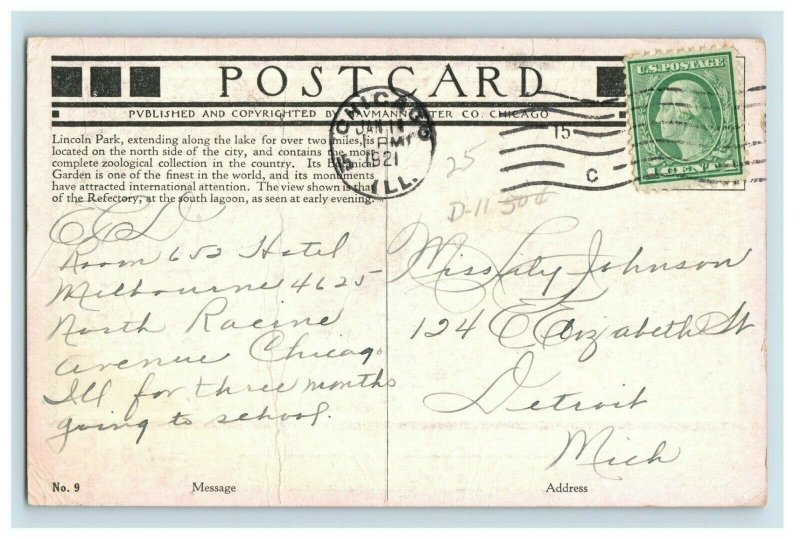 POSTCARD
PVBLISHED AND COPYRIGHTED BY CO. CHICAGO
Lincoln Park, extending along the lake for over two miles, is
located on the north side of the city, and contains the most
complete zoological collection in the country. Its
Garden is one of the finest in the world, and its monuments
have attracted international attention. The view shown is that
of the Refectory, at the south lagoon, as seen at early evening.
CHICAGO
JAN
PM
1921
15
ILL.
15
C
U.S. POSTAGE
1 CENT 1
25
D-11 50¢
Room 652 Hotel
Melbourne 4625
North Racine
Avenue Chicago
Ill for three months
going to school.
Miss Johnson
124 E Elizabeth St
Detroit
Mich
No. 9
Message
Address